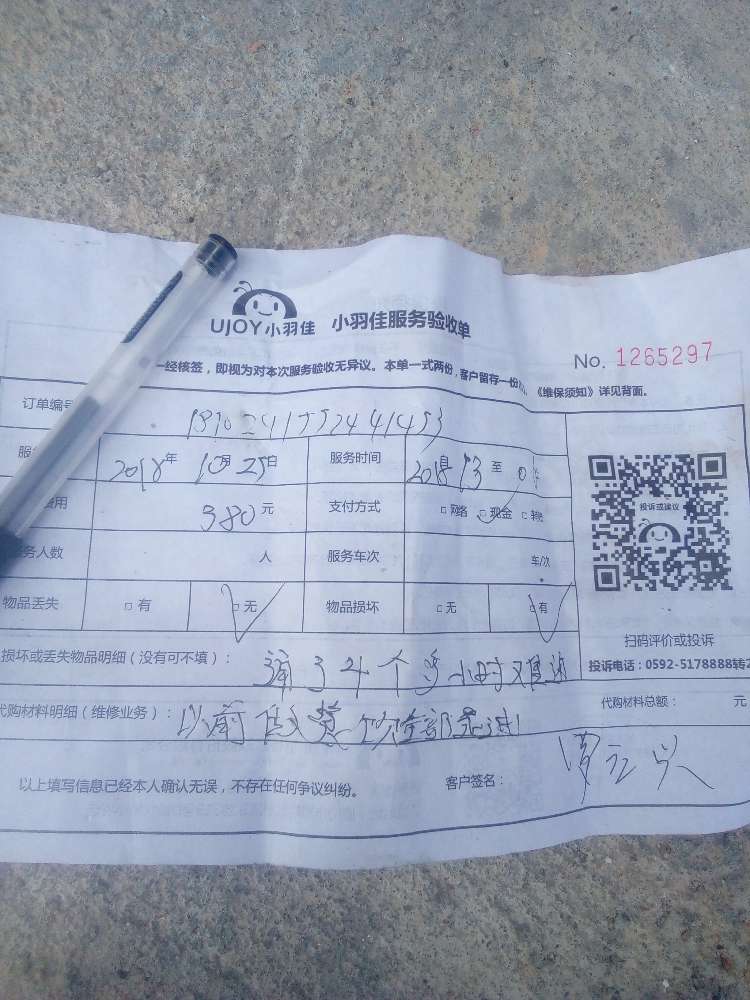 UJOY小羽佳 小羽佳服务验收单
No. 1265297
一经核签，即视为对本次服务验收无异议。本单一式两份，客户留存一份 《维保须知》详见背面。
订单编号
服 2018年 10月25日 服务时间 至
费用 380元 支付方式 □网络 □现金 □转账
务人数 人 服务车次 车/次
物品丢失 □有 □无 物品损坏 □无 □有
投诉或建议
扫码评价或投诉
投诉电话：0592-5178888转2
损坏或丢失物品明细（没有可不填）： 通了4个多小时
代购材料明细（维修业务）： 以前 代购材料总额： 元
以上填写信息已经本人确认无误，不存在任何争议纠纷。 客户签名：